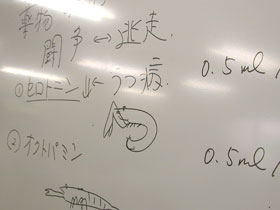 薬物
闘争 ↔ 逃走.
①セロトニン ↓ ← うつ病. 0.5ml/
②オクトパミン 0.5ml/